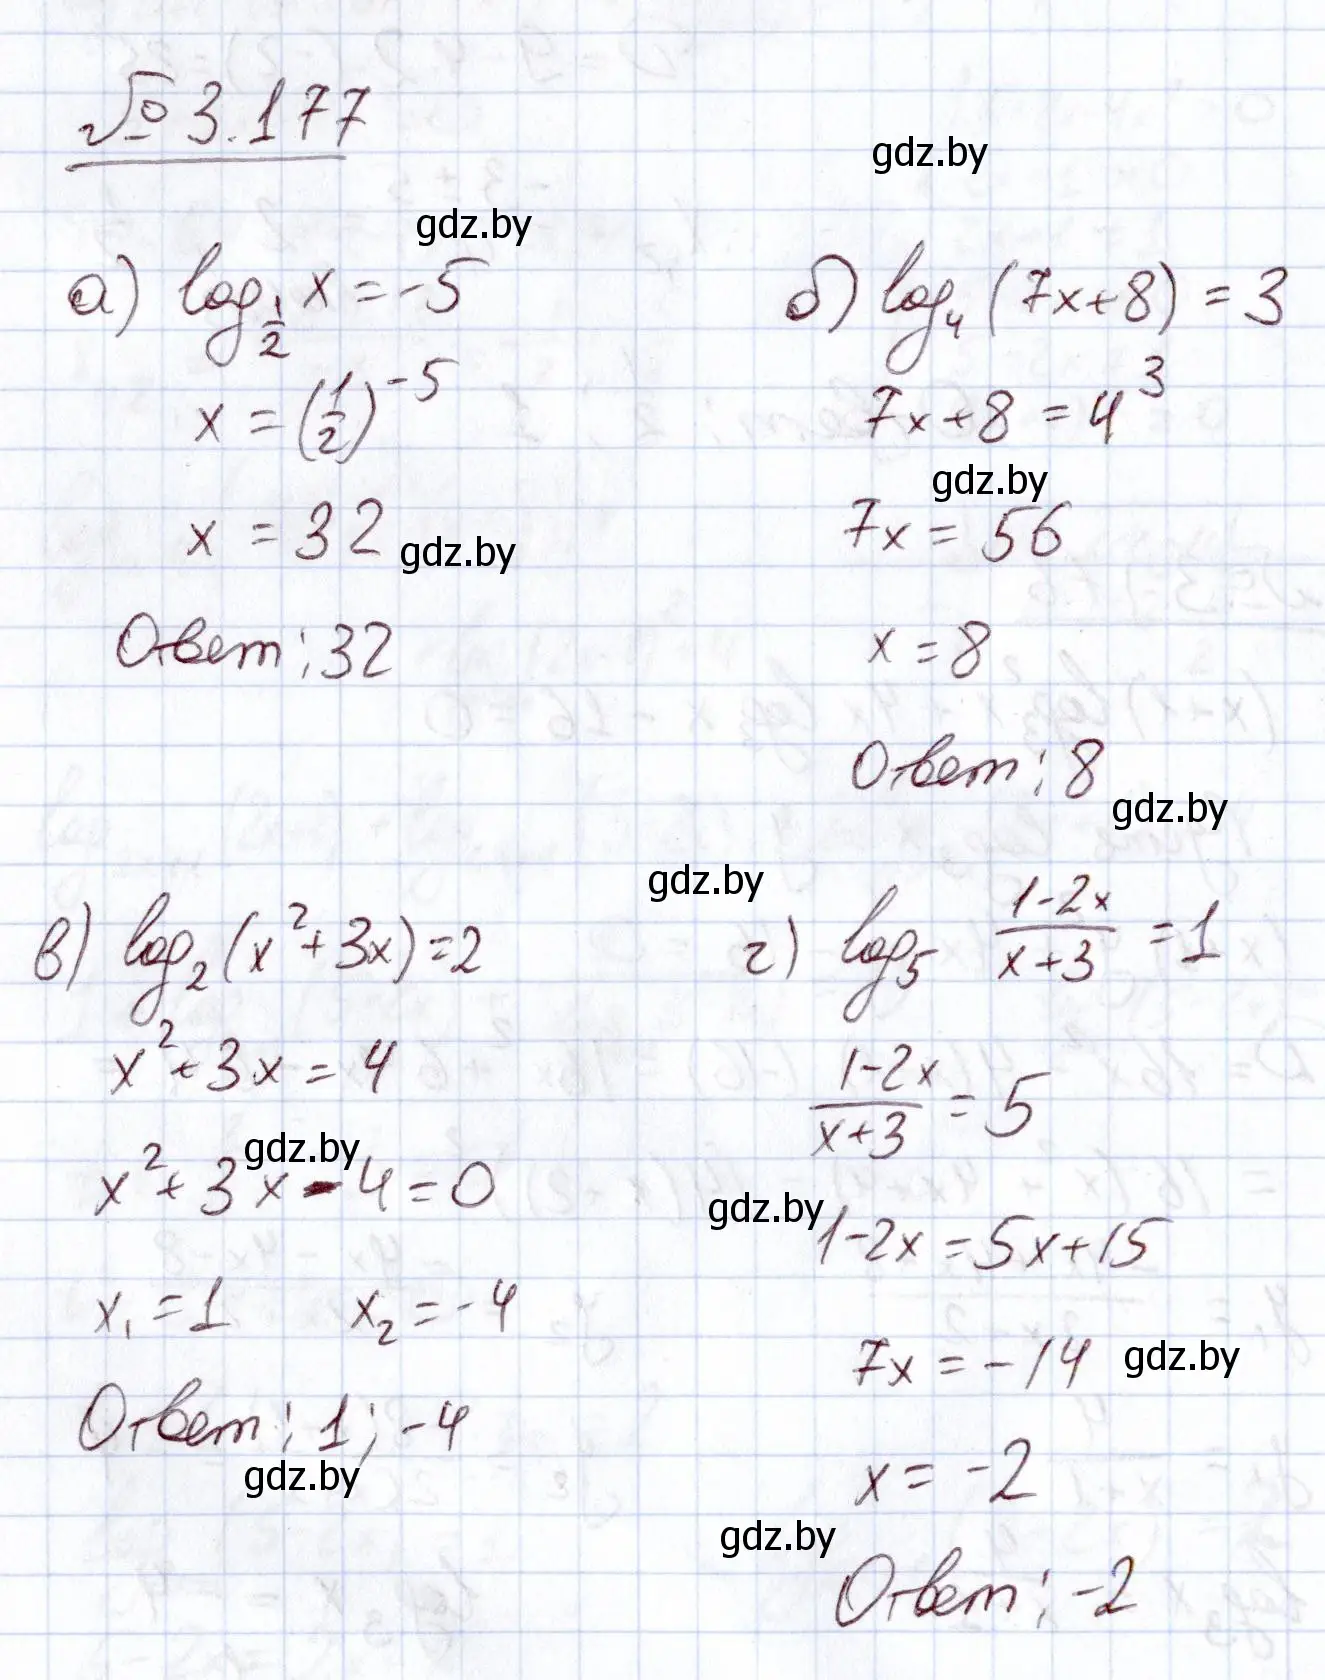 № 3.177
gdz.by
gdz.by
а) log_{1/2} x = -5
x = (1/2)^{-5}
x = 32
gdz.by
Ответ: 32
б) log_4 (7x+8) = 3
7x+8 = 4^3
gdz.by
7x = 56
x = 8
Ответ: 8
gdz.by
gdz.by
в) log_2 (x^2+3x) = 2
x^2+3x = 4
gdz.by
x^2+3x-4 = 0
x_1 = 1 x_2 = -4
Ответ: 1; -4
gdz.by
г) log_5 (1-2x)/(x+3) = 1
(1-2x)/(x+3) = 5
gdz.by
1-2x = 5x+15
7x = -14
gdz.by
x = -2
gdz.by
Ответ: -2